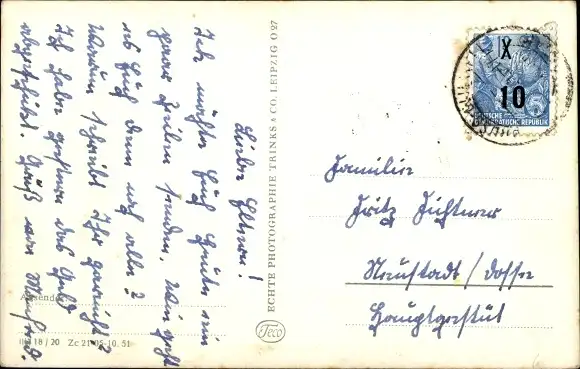 Liebe Eltern!
Ich möchte Euch heute ein
paar Zeilen senden. Wie geht
es Euch denn noch alle?
Warum schreibt Ihr gar nicht?
Ich habe gestern das Geld
abgeschickt. Gruß von Manfred.
Absender:
III/18/20 Zc 21-05-10.51
ECHTE PHOTOGRAPHIE TRINKS & CO. LEIPZIG O 27
Teco
X
10
DEUTSCHE
DEMOKRATISCHE REPUBLIK
Familie
Fritz Fichtner
Neustadt/Dosse
Hauptgestüt